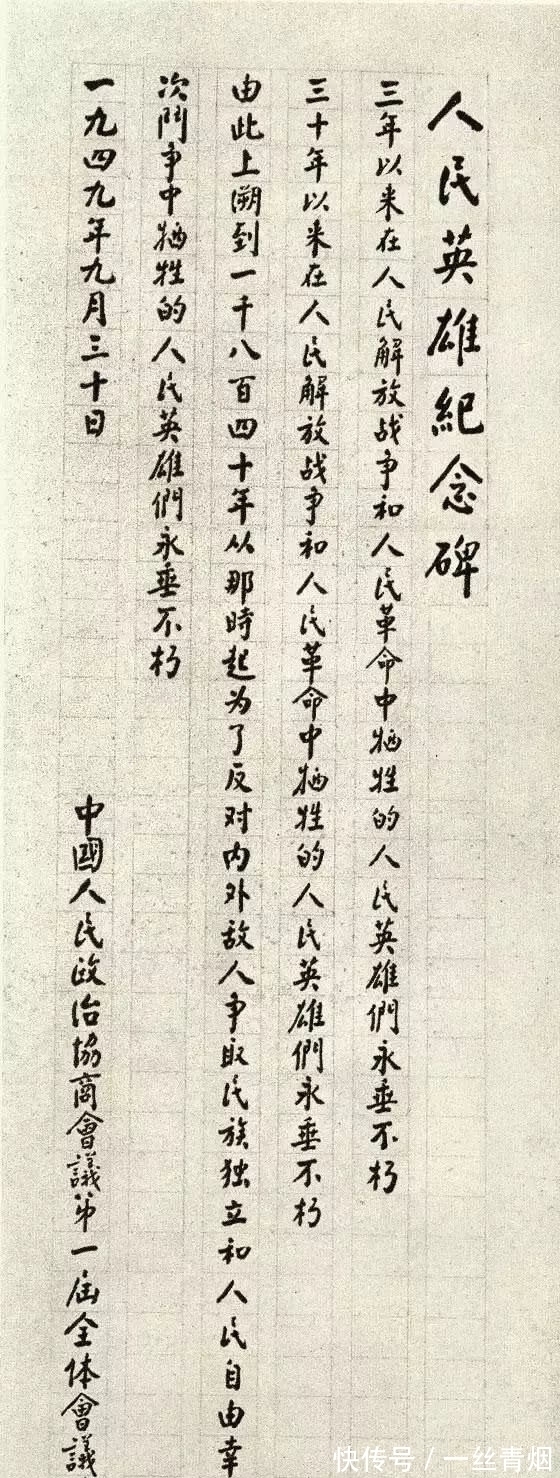 人民英雄紀念碑
三年以来在人民解放战争和人民革命中牺牲的人民英雄們永垂不朽
三十年以来在人民解放战争和人民革命中牺牲的人民英雄們永垂不朽
由此上溯到一千八百四十年从那時起为了反对内外敌人争取民族独立和人民自由幸
次鬥争中牺牲的人民英雄們永垂不朽
一九四九年九月三十日 中國人民政治協商會議第一届全体會議
快传号 / 一丝青烟